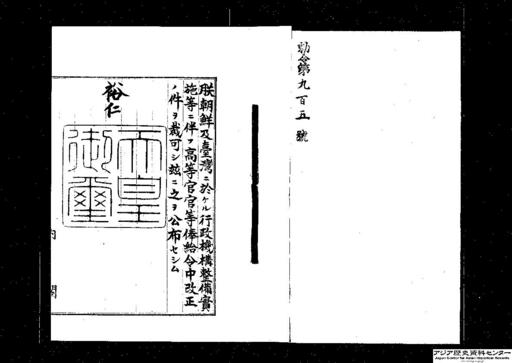 勅令第九百五號
朕朝鮮及臺灣ニ於ケル行政機構整備實
施等ニ伴フ高等官官等俸給令中改正
ノ件ヲ裁可シ玆ニ之ヲ公布セシム
裕仁
天皇
御璽
内閣
アジア歴史資料センター
Japan Center for Asian Historical Records